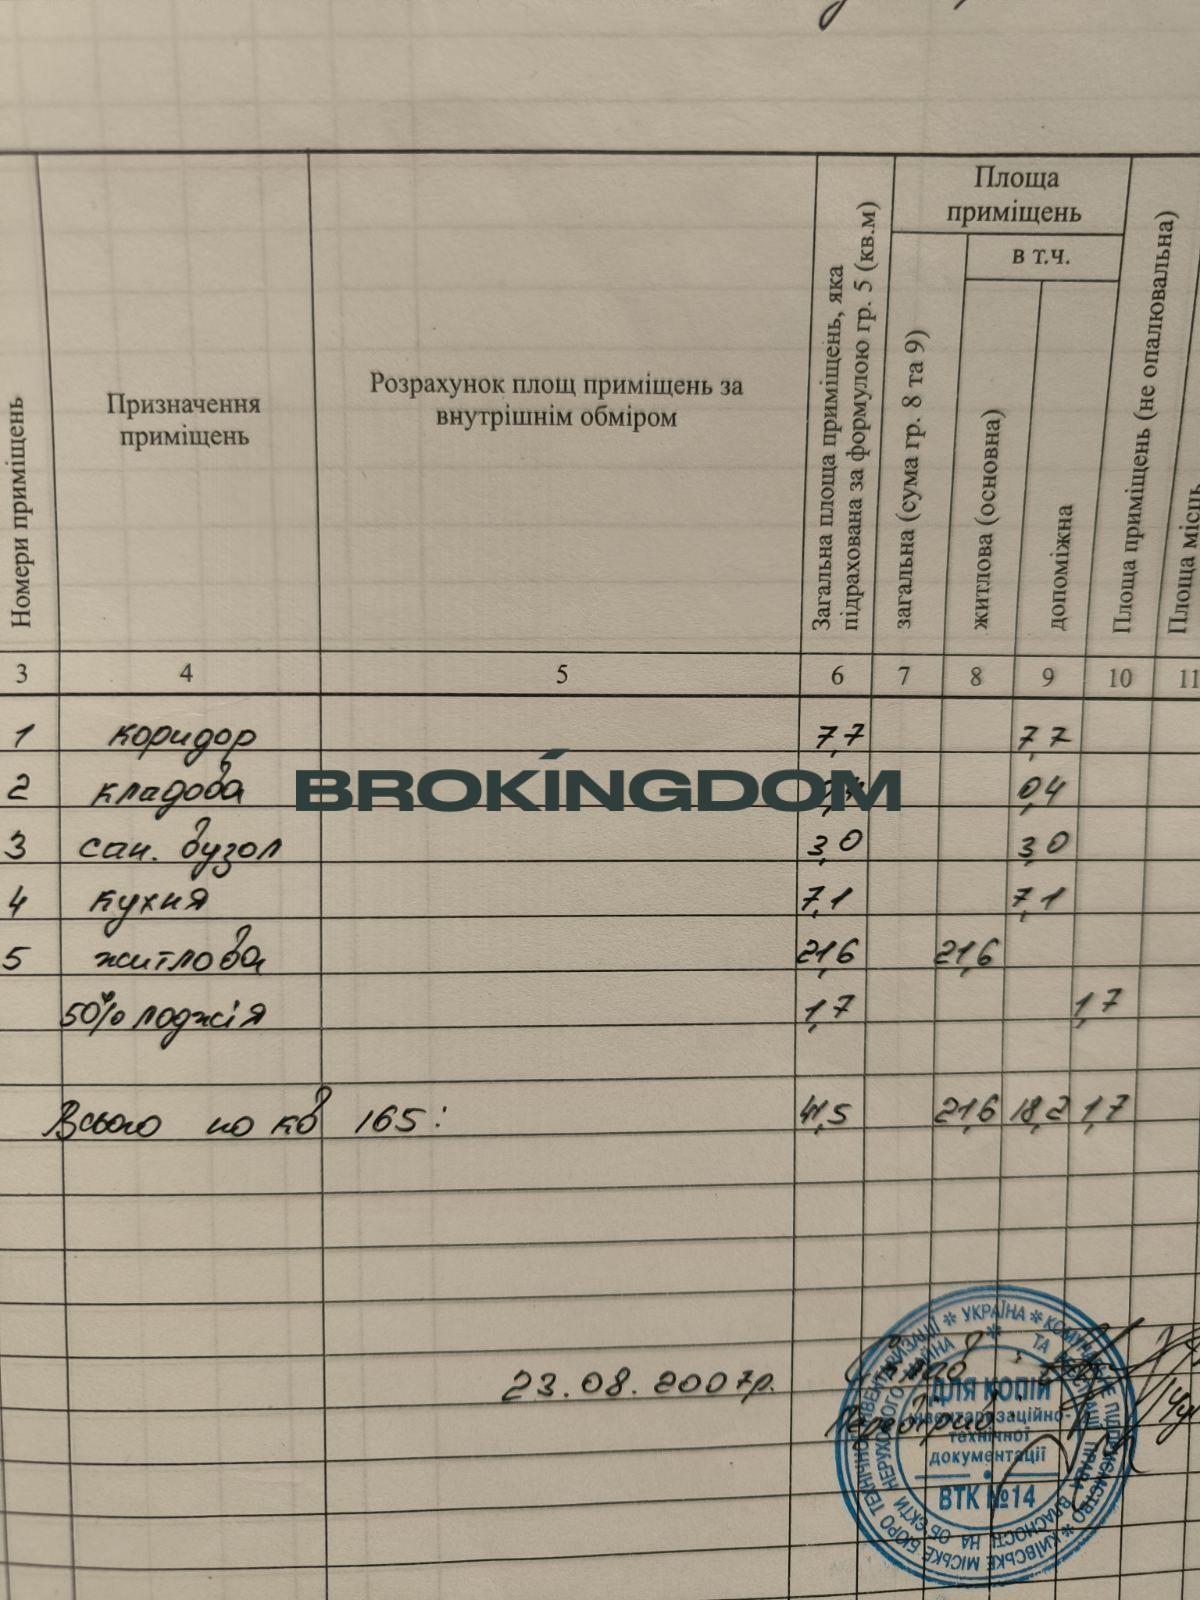 Номери приміщень
Призначення приміщень
Розрахунок площ приміщень за внутрішнім обміром
Загальна площа приміщень, яка підрахована за формулою гр. 5 (кв.м)
Площа приміщень
в т.ч.
загальна (сума гр. 8 та 9)
житлова (основна)
допоміжна
Площа приміщень (не опалювальна)
Площа місць
3 4 5 6 7 8 9 10 11
1 коридор 7,7 7,7
2 кладова 0,4
BROKINGDOM
3 сан. вузол 3,0 3,0
4 кухня 7,1 7,1
5 житлова 21,6 21,6
50% лоджія 1,7 1,7
Всього по кв 165: 41,5 21,6 18,2 1,7
23.08.2007р.
УКРАЇНА * КОМУНАЛЬНЕ ПІДПРИЄМСТВО * КИЇВСЬКЕ МІСЬКЕ БЮРО ТЕХНІЧНОЇ ІНВЕНТАРИЗАЦІЇ *
ТА РЕЄСТРАЦІЇ ПРАВА ВЛАСНОСТІ НА ОБ'ЄКТИ НЕРУХОМОГО МАЙНА *
ДЛЯ КОПІЙ
інвентаризаційно-
технічної
документації
ВТК №14